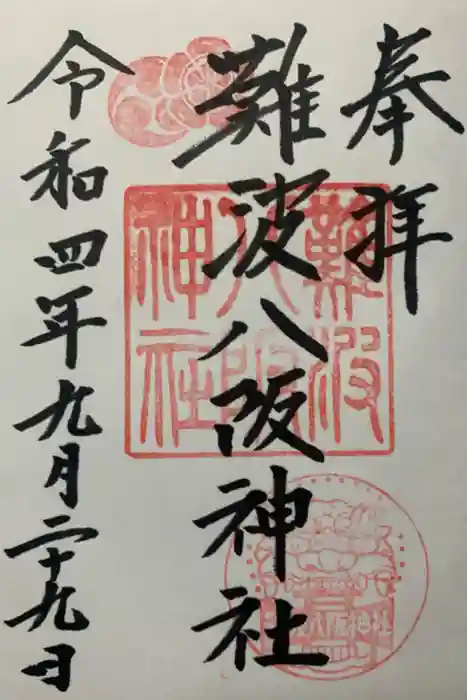 奉拝
難波八阪神社
令和四年九月二十九日
難波八阪神社